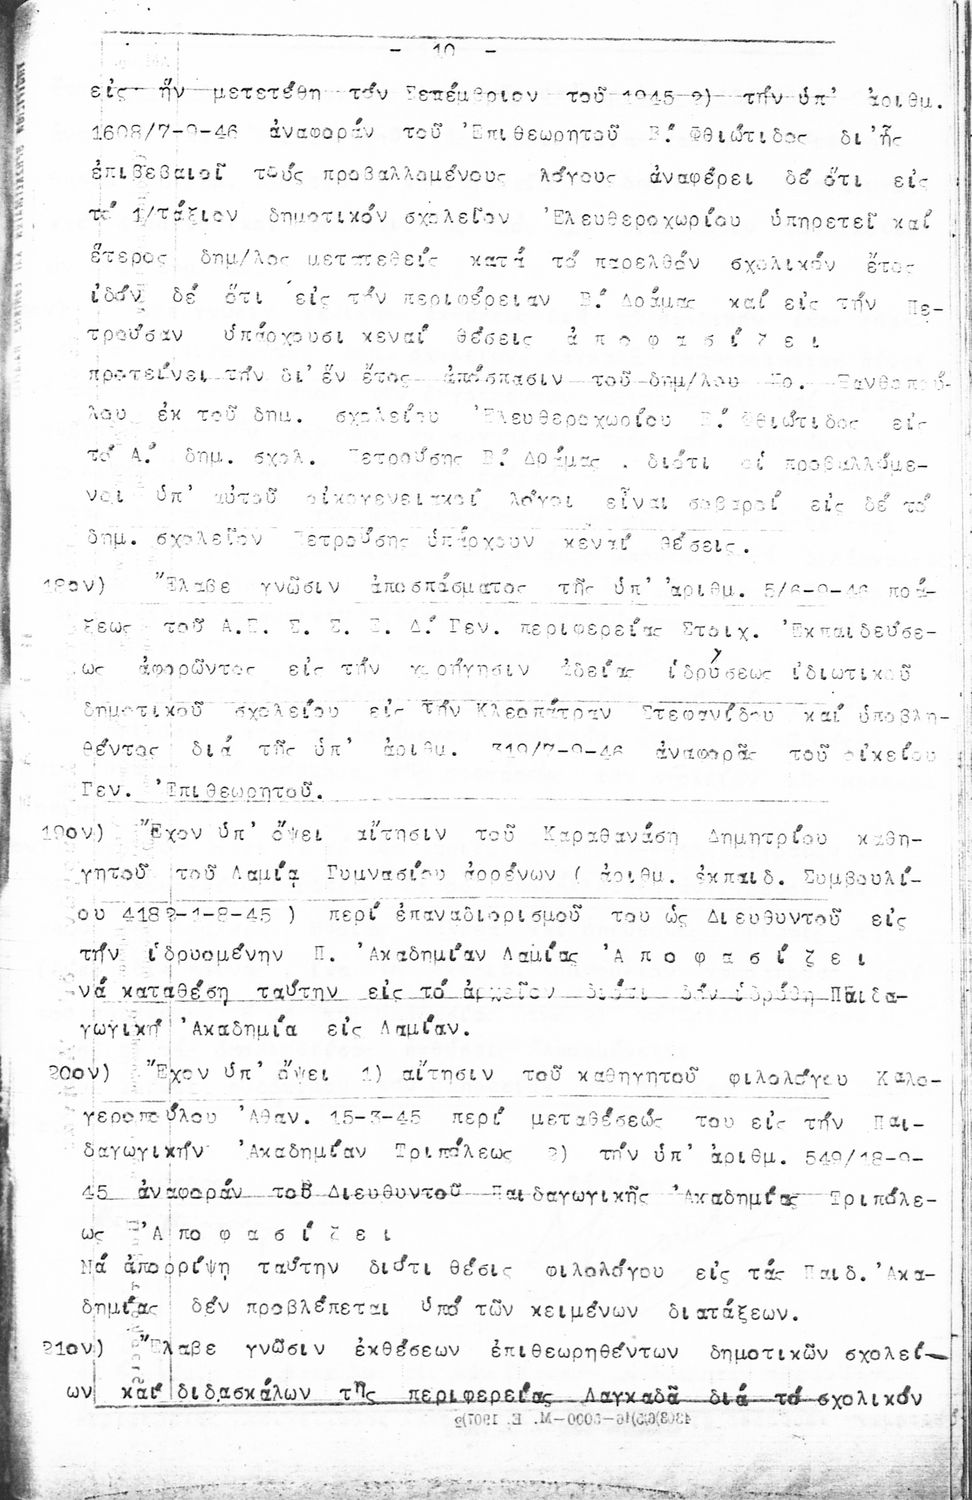 - 10 -
εἰς ἥν μετετέθη τόν Σεπέμβριον τοῦ 1945 2) τήν ὑπ' ἀριθμ.
1608/7-9-46 ἀναφοράν τοῦ Ἐπιθεωρητοῦ Β΄ Φθιώτιδος δι' ἧς
ἐπιβεβαιοῖ τούς προβαλλομένους λόγους ἀναφέρει δέ ὅτι εἰς
τό 1/τάξιον δημοτικόν σχολεῖον Ἐλευθεροχωρίου ὑπηρετεῖ καί
ἕτερος δημ/λος μετατεθείς κατά τό παρελθόν σχολικόν ἔτος
ἰδόν δέ ὅτι εἰς τήν περιφέρειαν Β΄ Δράμας καί εἰς τήν Πε-
τροῦσαν ὑπάρχουσι κεναί θέσεις ἀ π ο φ α σ ί ζ ε ι
προτείνει τήν δι' ἕν ἔτος ἀπόσπασιν τοῦ δημ/λου Ξανθοπού-
λου ἐκ τοῦ δημ. σχολείου Ἐλευθεροχωρίου Β΄ Φθιώτιδος εἰς
τό Α΄ δημ. σχολ. Πετρούσης Β΄ Δράμας . διότι οἱ προβαλλόμε-
νοι ὑπ' αὐτοῦ οἰκογενειακοί λόγοι εἶναι σοβαροί εἰς δέ τό
δημ. σχολεῖον Πετρούσης ὑπάρχουν κεναί θέσεις.
18ον) Ἔλαβε γνῶσιν ἀποσπάσματος τῆς ὑπ' ἀριθμ. 5/6-9-46 πρά-
ξεως τοῦ Α.Π. Σ. Σ. Ε. Δ΄ Γεν. περιφερείας Στοιχ. Ἐκπαιδεύσε-
ως ἀφορῶντος εἰς τήν χορήγησιν ἀδείας ἱδρύσεως ἰδιωτικοῦ
δημοτικοῦ σχολείου εἰς τήν Κλεοπάτραν Στεφανίδου καί ὑποβλη-
θέντος διά τῆς ὑπ' ἀριθμ. 319/7-9-46 ἀναφορᾶς τοῦ οἰκείου
Γεν. Ἐπιθεωρητοῦ.
19ον) Ἔχον ὑπ' ὄψει αἴτησιν τοῦ Καραθανάση Δημητρίου καθη-
γητοῦ τοῦ Λαμίᾳ Γυμνασίου ἀρρένων ( ἀριθμ. ἐκπαιδ. Συμβουλί-
ου 4182-1-8-45 ) περί ἐπαναδιορισμοῦ του ὡς Διευθυντοῦ εἰς
τήν ἱδρυομένην Π. Ἀκαδημίαν Λαμίας Ἀ π ο φ α σ ί ζ ε ι
νά καταθέση ταύτην εἰς τό ἀρχεῖον διότι δέν ἱδρύθη Παιδα-
γωγική Ἀκαδημία εἰς Λαμίαν.
20ον) Ἔχον ὑπ' ὄψει 1) αἴτησιν τοῦ καθηγητοῦ φιλολόγου Καλο-
γεροπούλου Ἀθαν. 15-3-45 περί μεταθέσεώς του εἰς τήν Παι-
δαγωγικήν Ἀκαδημίαν Τριπόλεως 2) τήν ὑπ' ἀριθμ. 549/18-9-
45 ἀναφοράν τοῦ Διευθυντοῦ Παιδαγωγικῆς Ἀκαδημίας Τριπόλε-
ως Ἀ π ο φ α σ ί ζ ε ι
Νά ἀπορρίψη ταύτην διότι θέσις φιλολόγου εἰς τάς Παιδ. Ἀκα-
δημίας δέν προβλέπεται ὑπό τῶν κειμένων διατάξεων.
21ον) Ἔλαβε γνῶσιν ἐκθέσεων ἐπιθεωρηθέντων δημοτικῶν σχολεί-
ων καί διδασκάλων τῆς περιφερείας Λαγκαδᾶ διά τό σχολικόν